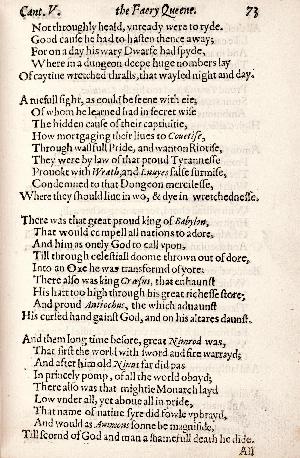 Cant. V. the Faery Queene. 73
Not throughly heald, vnready were to ryde.
Good cause he had to hasten thence away;
For on a day his wary Dwarfe had spyde,
Where in a dungeon deepe huge numbers lay
Of caytiue wretched thralls, that wayled night and day.
A ruefull sight, as could be seene with eie;
Of whom he learned had in secret wise
The hidden cause of their captiuitie,
How mortgaging their liues to Couetise,
Through wastfull Pride, and wanton Riotise,
They were by law of that proud Tyrannesse
Prouokt with Wrath, and Enuyes false surmise,
Condemned to that Dongeon mercilesse,
Where they should liue in wo, & dye in wretchednesse.
There was that great proud king of Babylon,
That would compell all nations to adore,
And him as onely God to call vpon,
Till through celestiall doome thrown out of dore,
Into an Oxe he was transformd of yore:
There also was king Crœsus, that enhaunst
His hart too high through his great richesse store;
And proud Antiochus, the which aduaunst
His cursed hand gainst God, and on his altares daunst.
And them long time before, great Nimrod was,
That first the world with sword and fire warrayd;
And after him old Ninus far did pas
In princely pomp, of all the world obayd;
There also was that mightie Monarch layd
Low vnder all, yet aboue all in pride,
That name of natiue syre did fowle vpbrayd,
And would as Ammons sonne be magnifide,
Till scornd of God and man a shamefull death he dide.
All